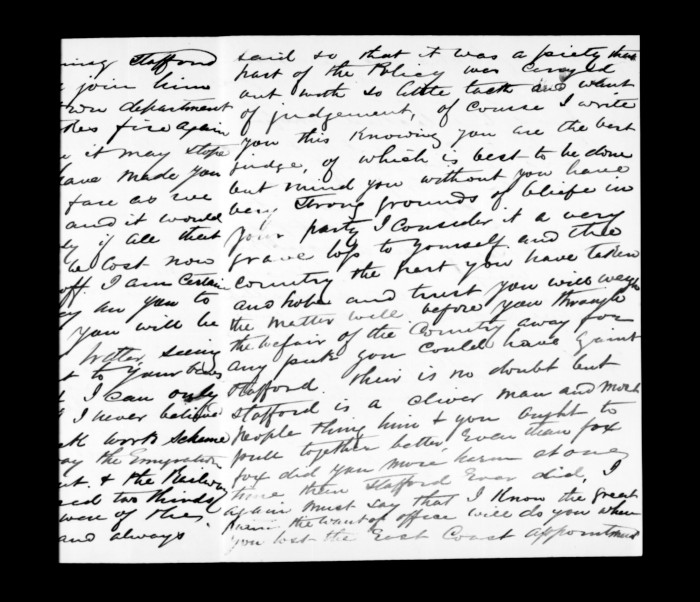 ning Stafford
join him
own department
fire again
it may stop
have made you
far as we
and it would
if all that
be lost now
off. I am certain
an you to
you will be
better, seeing
to your
I can only
I never believed
work scheme
the Emigration
& the Railway
two thirds
of this,
and always
said so, that it was a piety that
part of the Policy was carryed
out with so little tack and want
of judgement, of course I write
you this knowing you are the best
judge, of which is best to be done
but mind you without you have
very strong grounds of bliefe in
your party I consider it a very
grave loss to yourself and the
Country the part you have taken
and hope and trust you will weigh
the matter well before you through
the welfair of the Country away for
any peek you could have gaint
Stafford. Their is no doubt but
Stafford is a cliver man and most
People thing him & you ought to
pull together better Even than Fox
Fox did you more harm at one
time then Stafford Ever did, I
again must say that I know the great
the want of office will do you when
you lost the East Coast appointment